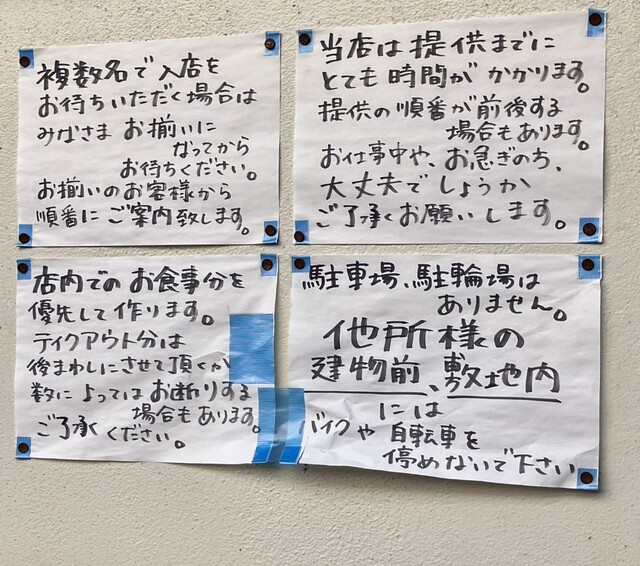 複数名で入店を
お待ちいただく場合は
みなさま お揃いに
なってから
お待ちください。
お揃いのお客様から
順番にご案内致します。
当店は提供までに
とても時間がかかります。
提供の順番が前後する
場合もあります。
お仕事中や、お急ぎのち、
大丈夫でしょうか
ご了承くお願いします。
店内でのお食事分を
優先して作ります。
テイクアウト分は
後まわしにさせて頂くか
数によってはお断りする
場合もあります。
ご了承ください。
駐車場、駐輪場は
ありません。
他所様の
建物前、敷地内
には
バイクや自転車を
停めないで下さい